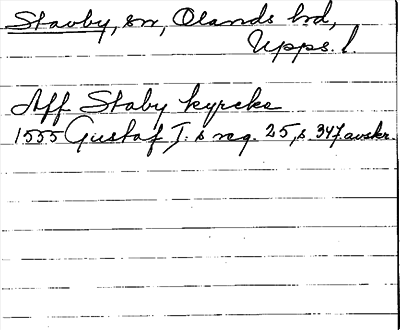 Stavby, sn, Olands hd,
Upps. l.
Aff Staby kyrcke
1555 Gustaf I:s reg. 25, s 347 avskr.